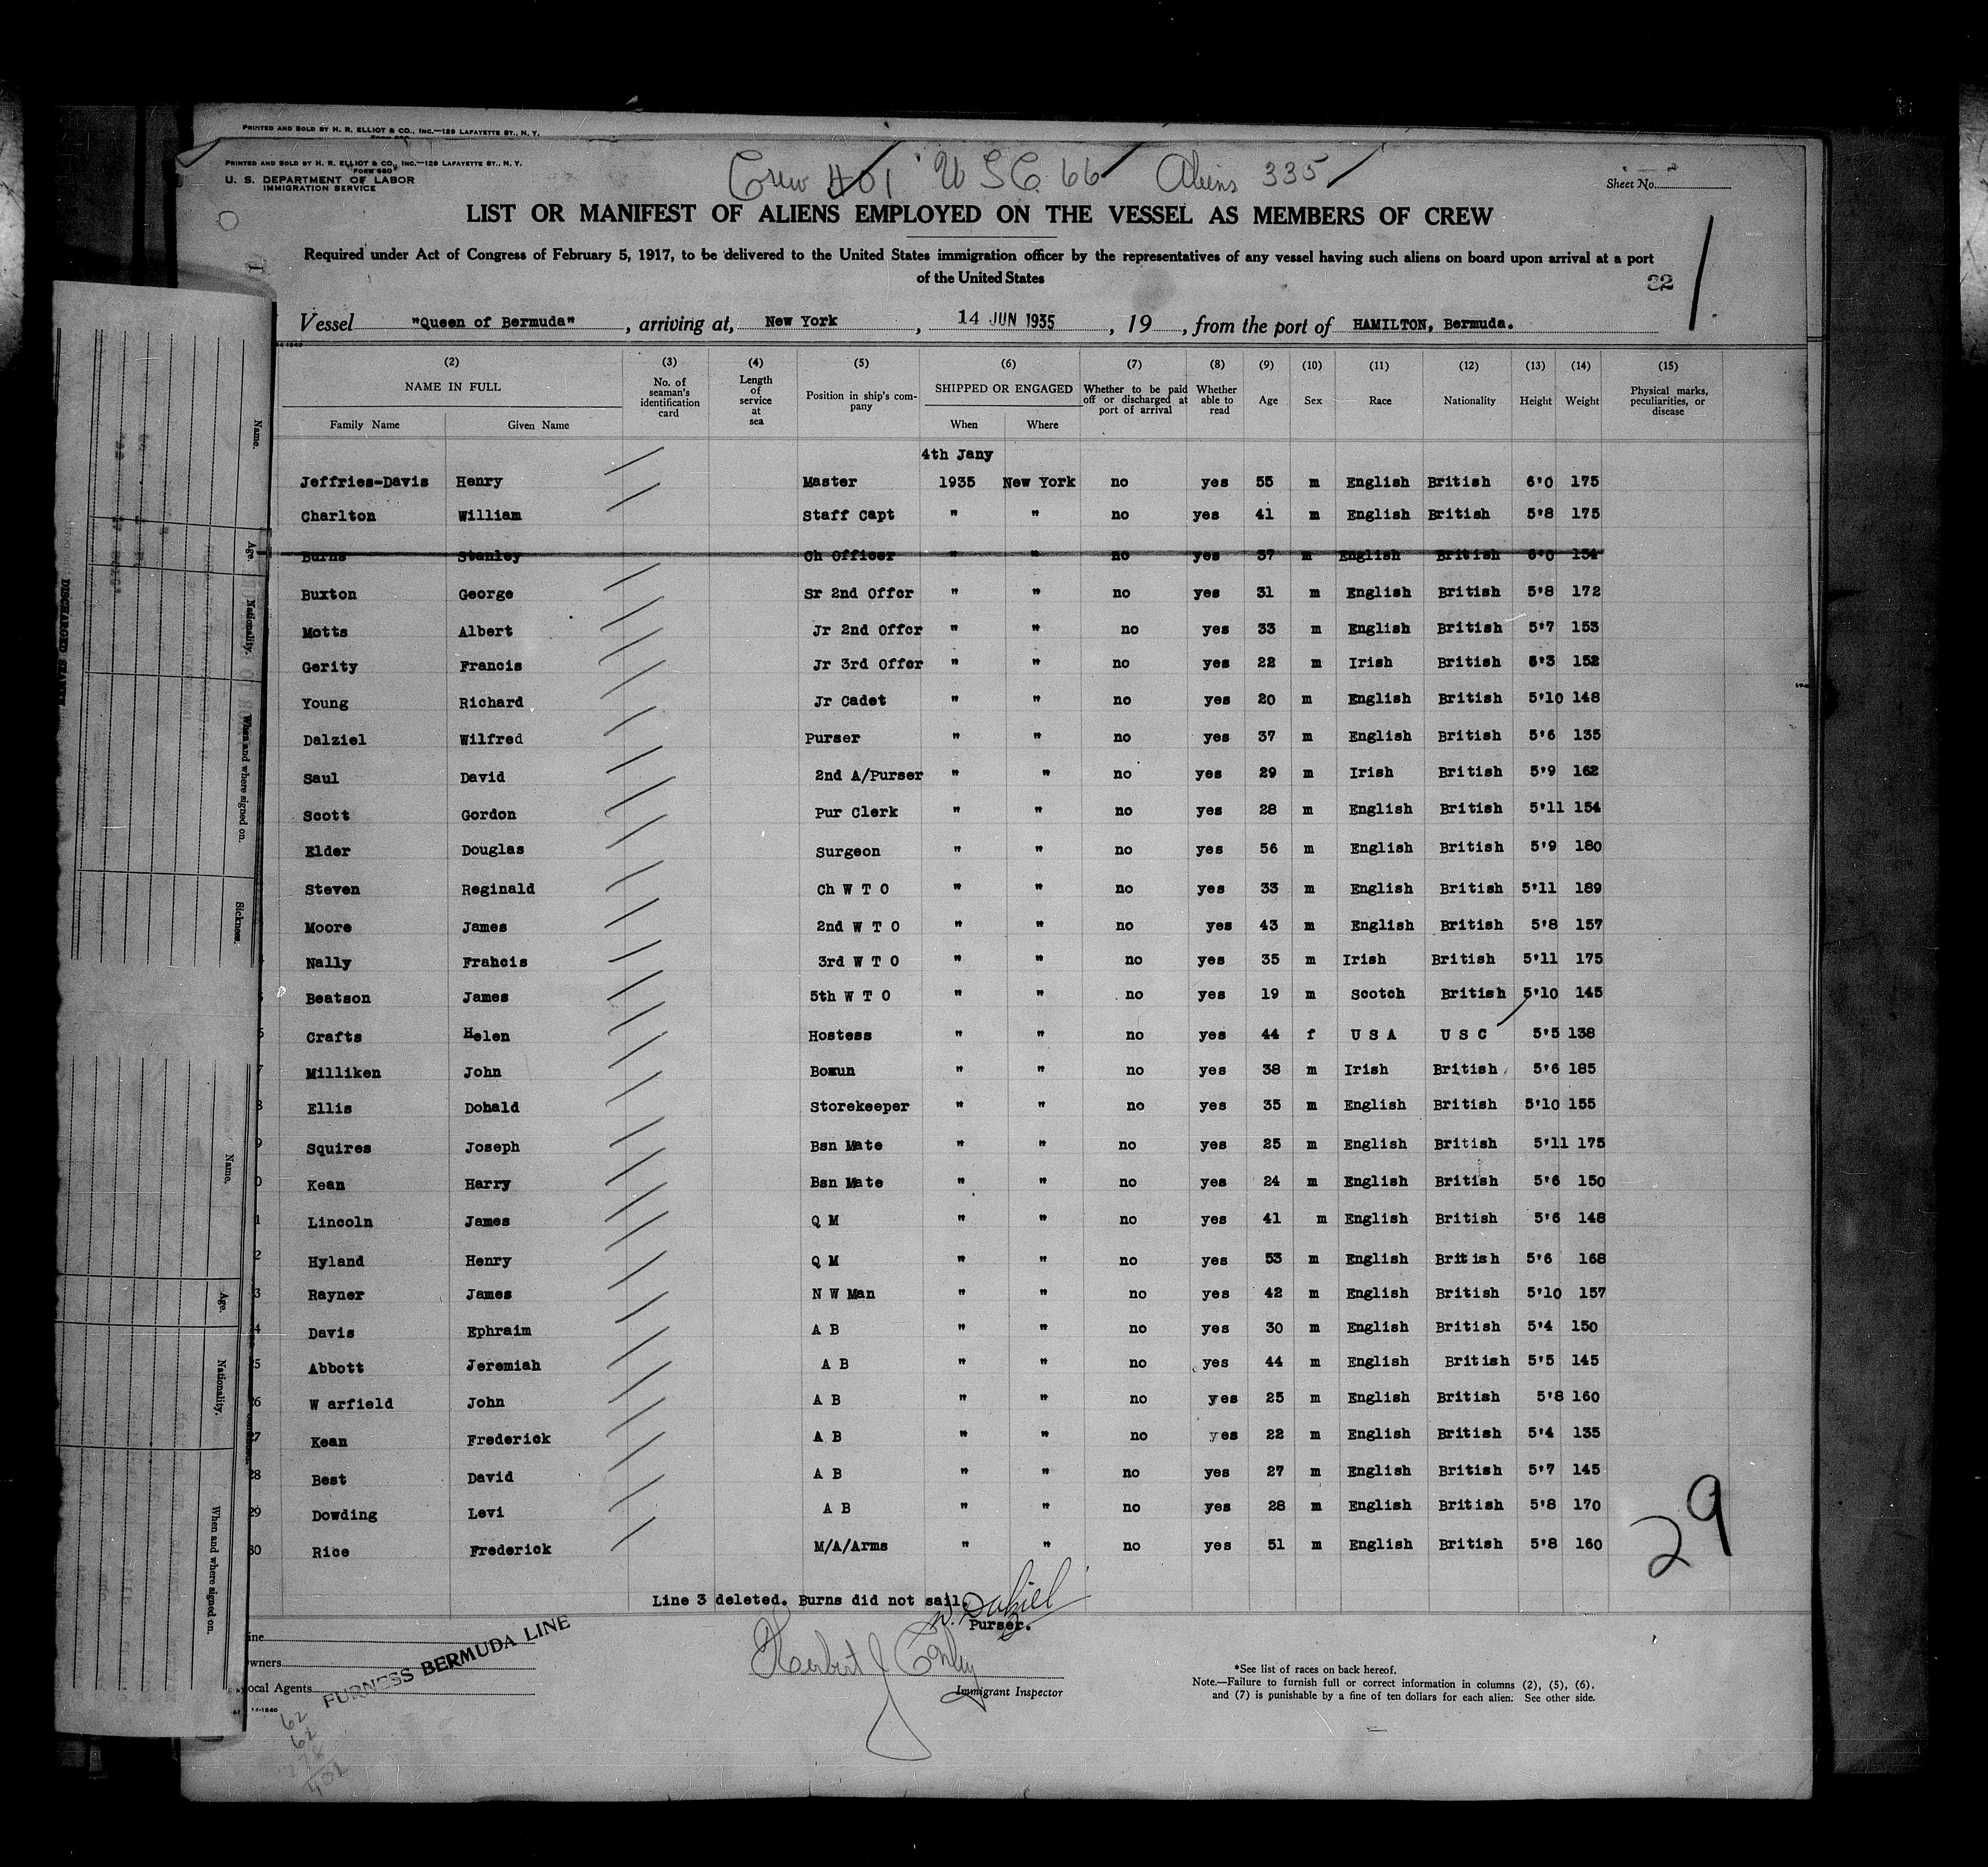 PRINTED AND SOLD BY H. R. ELLIOT & CO., INC.—129 LAFAYETTE ST., N. Y.
PRINTED AND SOLD BY H. R. ELLIOT & CO., INC.—129 LAFAYETTE ST., N. Y.
FORM 680
U. S. DEPARTMENT OF LABOR
IMMIGRATION SERVICE
Crew 401 USC 66 Aliens 335
Sheet No.
LIST OR MANIFEST OF ALIENS EMPLOYED ON THE VESSEL AS MEMBERS OF CREW
Required under Act of Congress of February 5, 1917, to be delivered to the United States immigration officer by the representatives of any vessel having such aliens on board upon arrival at a port
of the United States
32
1
Vessel "Queen of Bermuda", arriving at, New York, 14 JUN 1935, 19, from the port of HAMILTON, Bermuda.
(2) (3) (4) (5) (6) (7) (8) (9) (10) (11) (12) (13) (14) (15)
NAME IN FULL
Family Name Given Name
No. of seaman's identification card
Length of service at sea
Position in ship's company
SHIPPED OR ENGAGED
When Where
Whether to be paid off or discharged at port of arrival
Whether able to read
Age Sex Race Nationality Height Weight
Physical marks, peculiarities, or disease
4th Jany
Jeffries-Davis Henry Master 1935 New York no yes 55 m English British 6'0 175
Charlton William Staff Capt " " no yes 41 m English British 5'8 175
Burns Stanley Ch Officer " " no yes 37 m English British 6'0 154
Buxton George Sr 2nd Offcr " " no yes 31 m English British 5'8 172
Motts Albert Jr 2nd Offcr " " no yes 33 m English British 5'7 153
Gerity Francis Jr 3rd Offcr " " no yes 22 m Irish British 6'3 152
Young Richard Jr Cadet " " no yes 20 m English British 5'10 148
Dalziel Wilfred Purser " " no yes 37 m English British 5'6 135
Saul David 2nd A/Purser " " no yes 29 m Irish British 5'9 162
Scott Gordon Pur Clerk " " no yes 28 m English British 5'11 154
Elder Douglas Surgeon " " no yes 56 m English British 5'9 180
Steven Reginald Ch W T O " " no yes 33 m English British 5'11 189
Moore James 2nd W T O " " no yes 43 m English British 5'8 157
Nally Frahcis 3rd W T O " " no yes 35 m Irish British 5'11 175
Beatson James 5th W T O " " no yes 19 m Scotch British 5'10 145
Crafts Helen Hostess " " no yes 44 f U S A U S C 5'5 138
Milliken John Boxun " " no yes 38 m Irish British 5'6 185
Ellis Dohald Storekeeper " " no yes 35 m English British 5'10 155
Squires Joseph Bsn Mate " " no yes 25 m English British 5'11 175
Kean Harry Bsn Mate " " no yes 24 m English British 5'6 150
Lincoln James Q M " " no yes 41 m English British 5'6 148
Hyland Henry Q M " " no yes 53 m English British 5'6 168
Rayner James N W Man " " no yes 42 m English British 5'10 157
Davis Ephraim A B " " no yes 30 m English British 5'4 150
Abbott Jeremiah A B " " no yes 44 m English British 5'5 145
26 W arfield John A B " " no yes 25 m English British 5'8 160
27 Kean Frederick A B " " no yes 22 m English British 5'4 135
28 Best David A B " " no yes 27 m English British 5'7 145
29 Dowding Levi A B " " no yes 28 m English British 5'8 170
30 Rice Frederick M/A/Arms " " no yes 51 m English British 5'8 160
29
Line 3 deleted. Burns did not sail.
W. Dalziel
Purser.
Herbert J Conley
Immigrant Inspector
FURNESS BERMUDA LINE
ine
wners
ocal Agents
14-1240
62
62
401
*See list of races on back hereof.
Note.—Failure to furnish full or correct information in columns (2), (5), (6),
and (7) is punishable by a fine of ten dollars for each alien. See other side.
Name.
Age.
Nationality.
When and where signed on.
Sickness.
Name.
Age.
Nationality.
When and where signed on.